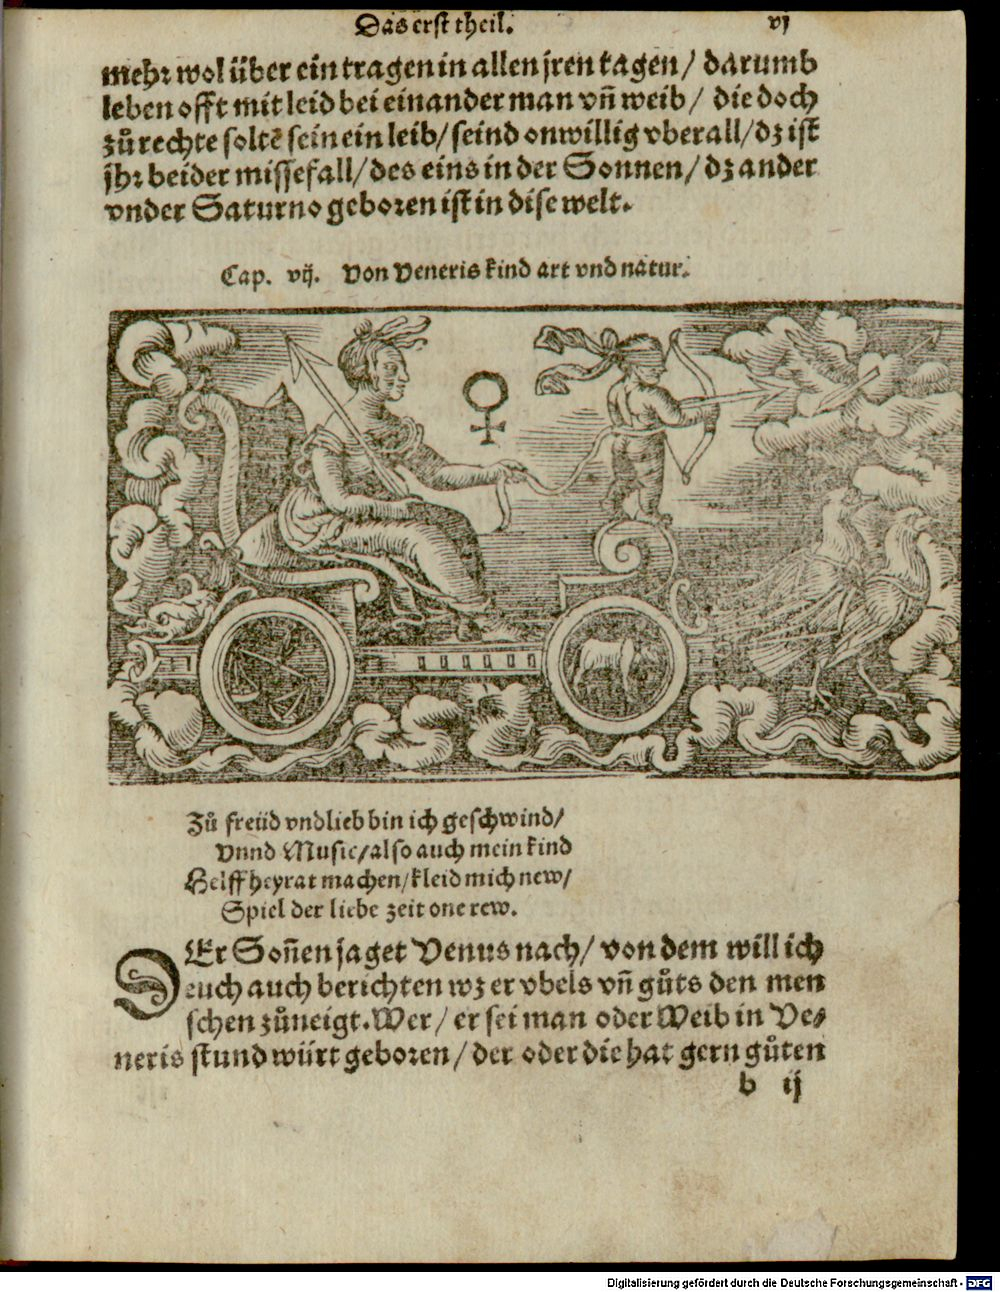 Das erst theil. vj
mehr wol über ein tragen in allen jren tagen / darumb
leben offt mit leid bei einander man vñ weib / die doch
zů rechte soltẽ sein ein leib / seind onwillig vberall / dz ist
jhr beider missefall / des eins in der Sonnen / dz ander
vnder Saturno geboren ist in dise welt.
Cap. vij. Von Veneris kind art vnd natur.
♀
Zů freüd vnd lieb bin ich geschwind /
Vnnd Music / also auch mein kind
Helff heyrat machen / kleid mich new /
Spiel der liebe zeit one rew.
DEr Soñen jaget Venus nach / von dem will ich
euch auch berichten wz er vbels vñ gůts den men
schen zůneigt. Wer / er sei man oder Weib in Ve⸗
neris stund würt geboren / der oder die hat gern gůten
b ij
Digitalisierung gefördert durch die Deutsche Forschungsgemeinschaft - DFG